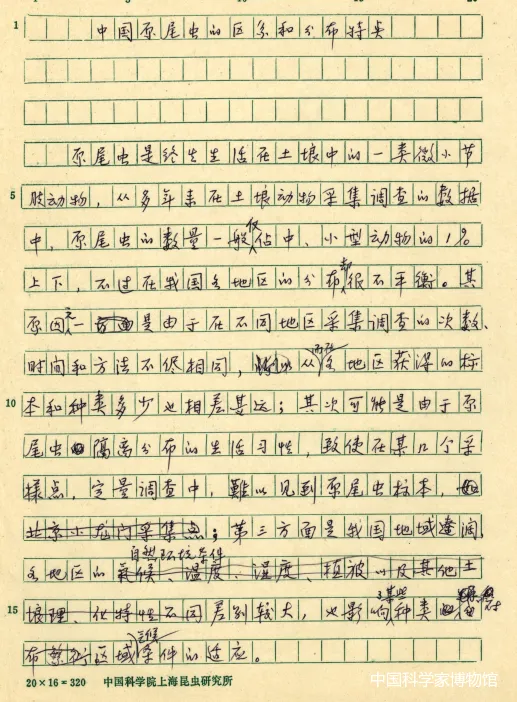 中国原尾虫的区系和分布特类
原尾虫是终生生活在土壤中的一类微小节
5 肢动物，从多年来在土壤动物采集调查的数据
中，原尾虫的数量一般仅佔中、小型动物的1%
上下，不过在我国各地区的分布却很不平衡。其
原因之一是由于在不同地区采集调查的次数、
时间和方法不尽相同，从而在各地区获得的标
10 本和种类多少也相差甚远；其次可能是由于原
尾虫隔离分布的生活习性，致使在某几个采
样点，定量调查中，難以见到原尾虫标本，
北京小龙门采集点；第三方面是我国地域遼阔，
自然环境条件
各地区的氣候、温度、湿度、植被以及其他土
15 壤理、化特性不同差别较大，也影响某些种类的分
布区域气候条件的适应。
20×16=320 中国科学院上海昆虫研究所
中国科学家博物馆